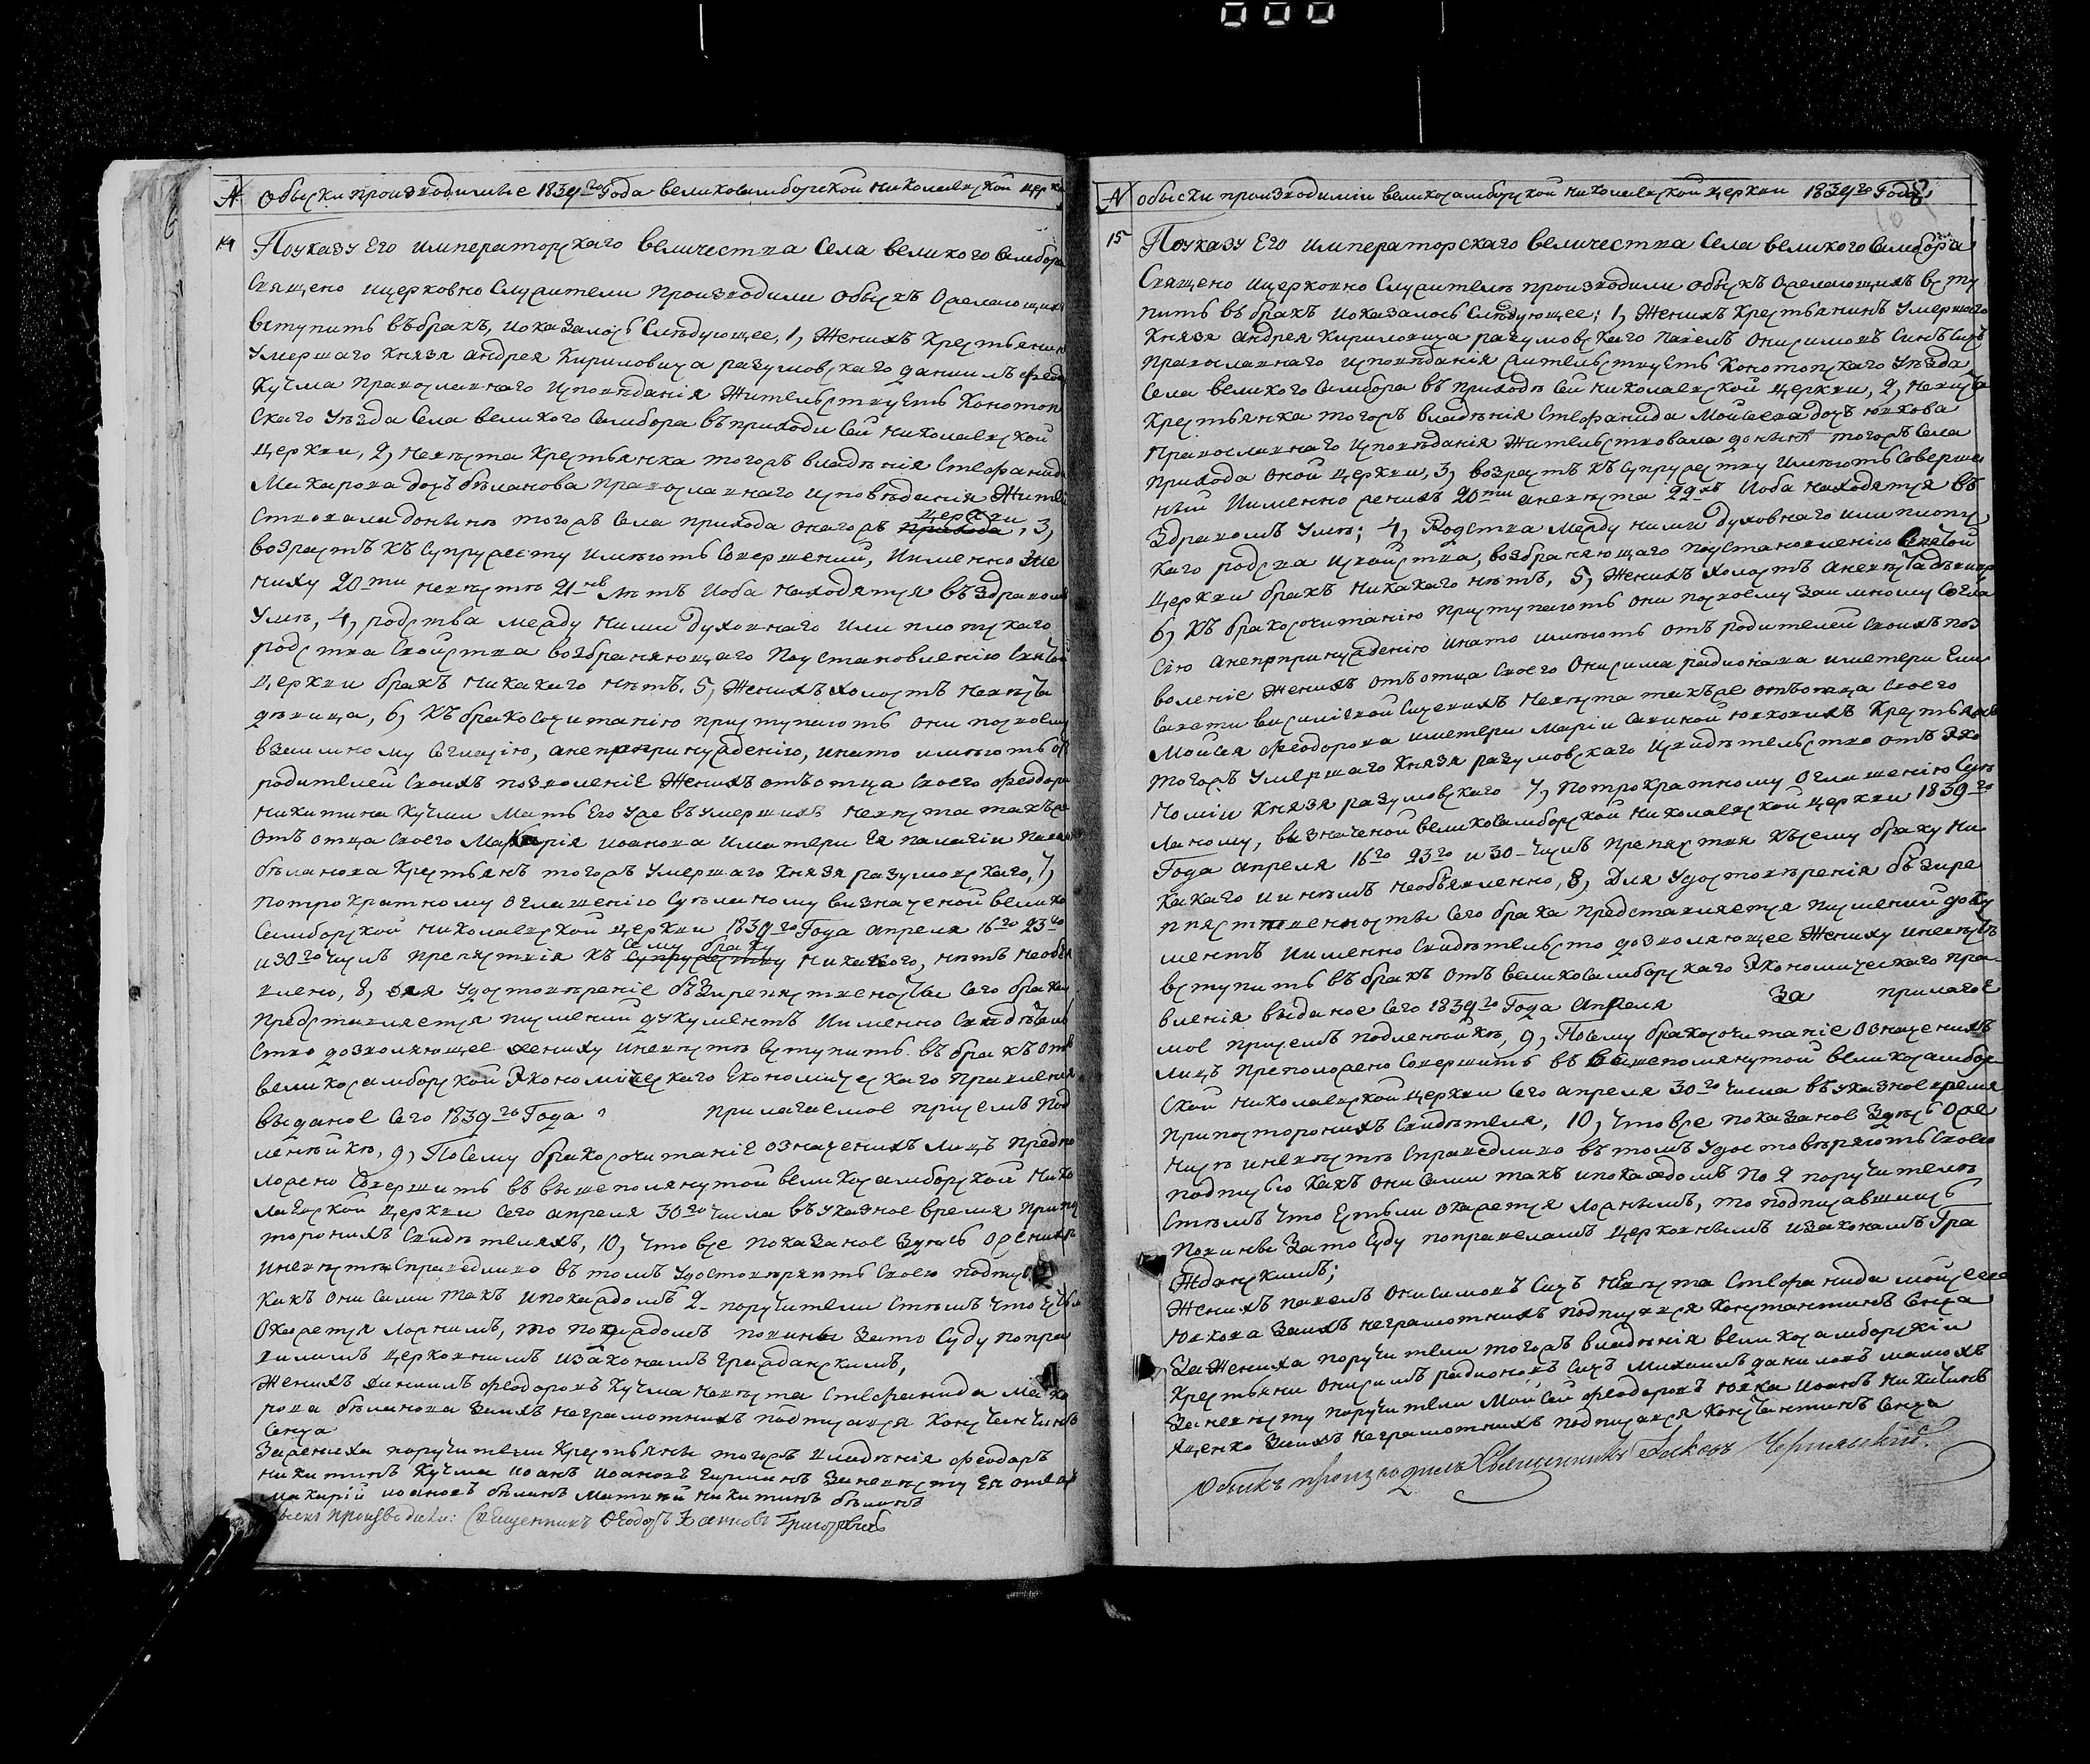 № Обыски произходимые 1839го Года великосамборской николаевской церкви
14 Поуказу Его императорскаго величества Села великого самбора
Священо ицерковно Служители произходили обыскъ Ожелающихъ
вступить въбракъ, иоказалось Слѣдующее, 1, Женихъ Крестьянинъ
Умершаго Князя андрея Кириловича разумовскаго даниилъ феод
Кучма православнаго исповѣданія Жительствуетъ Конотоп
Скаго Уѣзда Села великого Самбора въприходи Сей николаевской
Церкви, 2, невѣста Крестьянка тогожъ владѣнія Стефанида
Макарова дочъ бѣланова православнаго исповѣданія Жители
Ствовала донынѣ тогожъ Села прихода оногожъ прихода церкви, 3,
возрастъ къ Супружеству имѣютъ Совершений, Именно Же
ниху 20ти невѣстѣ 21 лѣтъ Иоба находятся въздравомъ
Умѣ, 4, родства между ними духовнаго или плотскаго
родства Свойства возбраняющаго Поустановленію Святой
церкви бракъ никакаго нѣтъ. 5, Женихъ холостъ невѣста
дѣвица, 6, къ бракосочитанію приступаютъ они посвоему
взаимному Согласію, анепопринуждению, инато имѣютъ от
родителей Своихъ позволеніе Женихъ отъотца Своего Феодора
никитина Кучми Мать Его Уже въумершихъ невѣста такъже
отъ отца Своего Макарія иоанова Иматери Ея палагіи
бѣланова Крестьянъ тогожъ Умершаго Князя разумовскаго, 7,
потрократному оглашенію Сдѣланому вызначеной велико
Самборской николаевской церкви 1839го Года апреля 16го 23го
и 30го числъ препятствія къ Супружеству Сему браку никакого, нѣтъ необя
влено, 8, для Удостовѣреніе бѣзпрепятственостьи Сего брака
Представляется писмений дукументъ Именно Свидѣтель
Ство дозволяющее жениху иневѣстѣ вступить въ бракъ отъ
великосамборской Экономическаго Економическаго Правленія
выданое Сего 1839го Года прилагаемое присемъ под
ленѣикѣ, 9, Посему бракосочитаніе означенихъ лицъ предпо
ложено Совершить въ вышепомянутой великосамборской Нико
лаевской церкви Сего апреля 30го числа въуказное время при пос
торонихъ Свидѣтеляхъ, 10, что все показаное Здѣсь о женихѣ
иневѣстѣ Справедливо въ томъ Удостовѣряютъ Своею подпись
какъ они Сами такъ ипокаждомъ 2 поручители Стѣмъ что Естьли
Окажется ложнимъ, то покаждомъ повины Зато Суду попра
виламъ церковнимъ изаконамъ гражданскимъ,
Женихъ даниилъ Феодоровъ Кучма невѣста Стефанида Мака
рова бѣланова Заихъ неграмотнихъ подписался Константинъ
Сенча
Зажениха поручители Крестьяни тогожъ владѣнія Феодоръ
никитинъ Кучма иоанъ иоановъ Заневѣсту Ея отецъ
макарій иоановъ бѣланъ никитинъ бѣланъ
Обыскъ производили: Священникъ Феодоръ
№ обыски произходиміи великосамборской николаевской церкви 1839го Года
15 Поуказу Его императорскаго величества Села великого Самбора
Священо ицерковно Служители произходили обыскъ Ожелающихъ всту
пить въ бракъ иоказалось Слѣдующее: 1, Женихъ Крестьянинъ Умершаго
Князя андрея Кириловича разумовскаго Павелъ Онисимовъ Синъ Сыъ
православнаго исповѣданія жительствуетъ Конотопскаго Уѣзда
Села великого Самбора въ приходѣ Сей николаевской церкви, 2, невѣста
Крестьянка тогожъ владѣнія Стефанида Мойсеева дочъ юхкова
Православнаго исповѣданія Жительствовала донынѣ тогожъ Села
прихода оной церкви, 3, возрастъ къ Супружеству имѣютъ Соверше
ний Именно женихъ 20ти аневѣста 22хъ Иоба находятся въ
Здравомъ Умѣ; 4, Родства между ними духовнаго или плотс
каго родства исвойства, возбраняющаго поустановленію Святой
Церкви бракъ никакаго нѣтъ, 5, Женихъ холостъ аневѣста дѣвица
6, къ бракосочитанію приступаютъ они посвоему взаимному Согла
сію анепопринуждению инато имѣютъ отъ родителей Своихъ поз
воленіе Женихъ отъотца Своего Онисима радионова иматери Ели
савети василіевой невѣста такъже отъотца Своего
Мойсея Феодорова иматери Маріи Савиной юхковихъ Крестьянъ
тогожъ Умершаго Князя разумовскаго исвидѣтельство отъ Эко
номіи Князя разумовскаго 7, Потрократному оглашенію Сдѣ
ланому, вызначеной великосамборской николаевской церкви 1839го
Года апреля 16го 23го и 30 числъ препятствія къ сему браку ни
какаго иникѣмъ необъявленно, 8, для Удостовѣренія бѣзпре
пятственностьи Сего брака представляется писмений доку
ментъ Именно Свидѣтельсто дозволяющее Жениху иневѣстѣ
вступить въ бракъ отъ великосамборскаго Экономическаго пра
вленія выданое Сего 1839го Года апреля За прилагае
мое присемъ подленѣикѣ, 9, Посему бракосочитаніе означенихъ
лицъ преположено Совершить въ вышепомянутой великосамбор
ской николаевской церкви Сего апреля 30го числа въуказное время
припосторонихъ Свидѣтеля, 10, что все показаное Здѣсь о же
нихѣ иневѣстѣ Справедливо въ томъ Удостовѣряютъ Своею
подписью какъ они Сами такъ ипокаждомъ по 2 поручителѣ
Стѣмъ что Естьли окажется ложнымъ, то подписавшиесь
Повинны Зато Суду поправеламъ церковнымъ изаконамъ Гра
жданскимъ;
Женихъ павелъ Онисимовъ Сыъ невѣста Стефанида мойсеева
Юхкова Заихъ неграмотнихъ подписался Константинъ Сенча
За Жениха поручители тогожъ владѣнія великосамборскіи
Крестьяни Онисимъ радионовъ Сыъ Михаилъ даниловъ
Заневѣсту поручители Мойсей Феодоровъ Юхка Иоанъ никитинъ
Яценко Заихъ неграмотнихъ подписался Константинъ Сенча
Обыскъ производилъ Священникъ Іаковъ Чернявскій